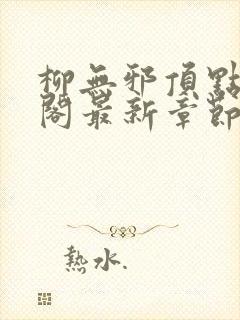 柳無邪頂點
閣最新章節
熱水.